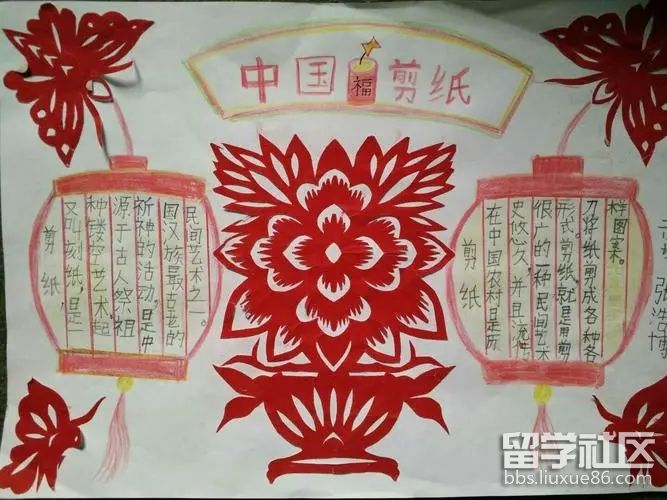 中国福剪纸
剪纸,
又叫刻纸,是
种镂空艺术起
源于古人祭祖
祈神的活动,是中
国汉族最古老的
民间艺术之一。
剪纸
在中国农村是历
史悠久,并且流传
很广的一种民间艺术
形式。剪纸,就是用剪
刀将纸剪成各种各
样图案。
张浩博
留学社区
bbs.liuxue86.com